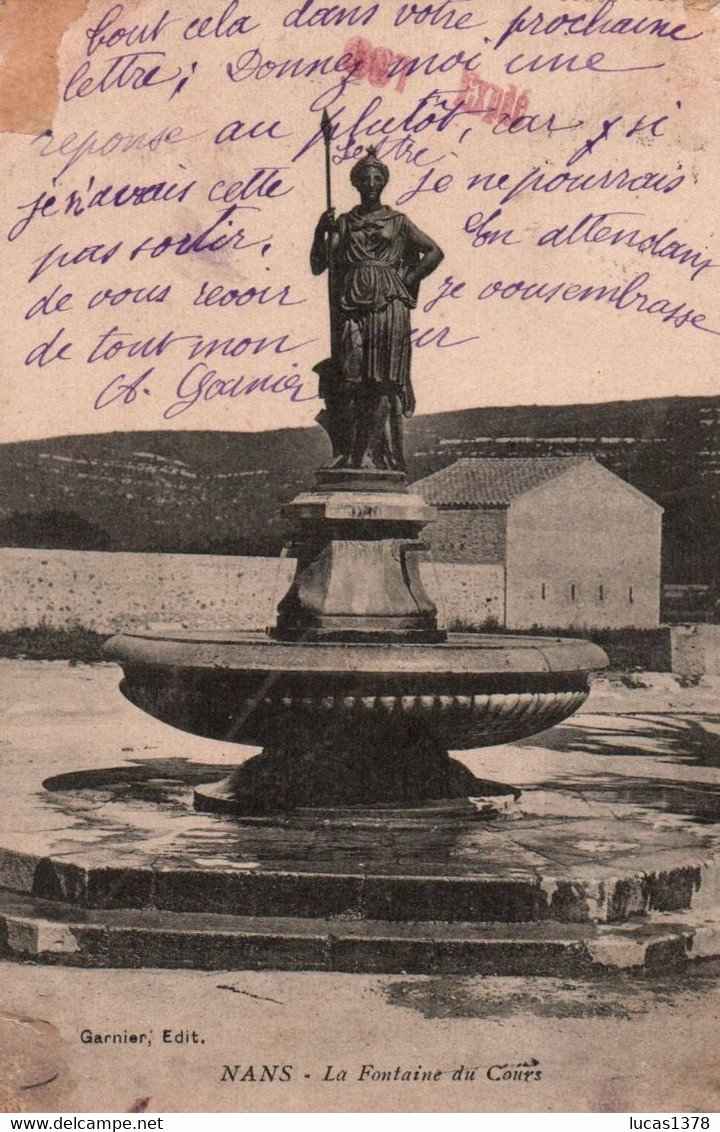 tout cela dans votre prochaine
lettre; Donnez moi une
reponse au plutôt, car si
je n'avais cette lettre je ne pourrais
pas sortir. En attendant
de vous revoir je vous embrasse
de tout mon cœur
A. Garnier
Expdé
Garnier, Edit.
NANS - La Fontaine du Cours
lucas1378